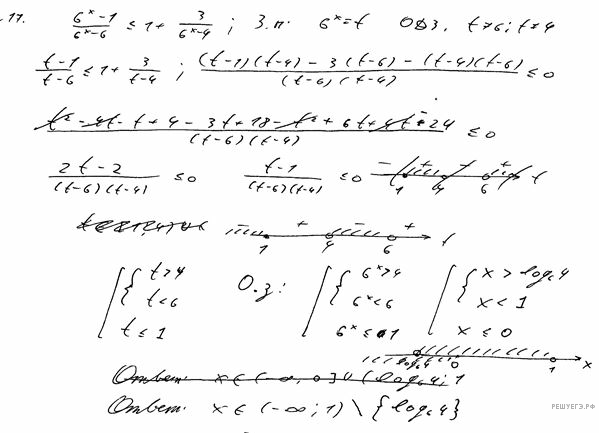 17. (6^x - 1)/(6^x - 6) ≤ 1 + 3/(6^x - 4) ; З.п. 6^x = t ОДЗ. t ≠ 6; t ≠ 4
(t-1)/(t-6) ≤ 1 + 3/(t-4) ; ((t-1)(t-4) - 3(t-6) - (t-4)(t-6))/((t-6)(t-4)) ≤ 0
(t² - 4t - t + 4 - 3t + 18 - t² + 6t + 4t - 24)/((t-6)(t-4)) ≤ 0
(2t-2)/((t-6)(t-4)) ≤ 0 (t-1)/((t-6)(t-4)) ≤ 0 - + - + 1 4 6 t
- + - + 1 4 6 t
[ { t > 4 О.з: [ { 6^x > 4 [ { x > log₆4
t < 6 6^x < 6 x < 1
t ≤ 1 6^x ≤ 1 x ≤ 0
log₆4 0 1 x
Ответ: x ∈ (-∞, 0] ∪ (log₆4; 1
Ответ: x ∈ (-∞; 1) \ {log₆4}
РЕШУЕГЭ.РФ